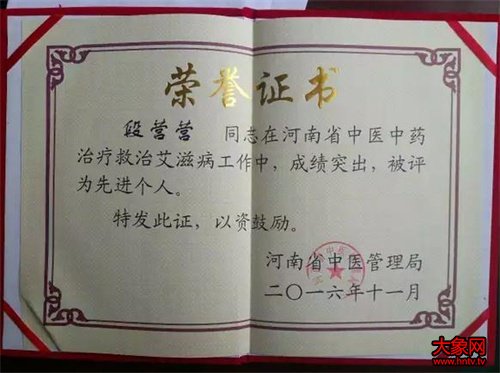 荣誉证书
段营营 同志在河南省中医中药
治疗救治艾滋病工作中，成绩突出，被评
为先进个人。
特发此证，以资鼓励。
河南省中医管理局
二〇一六年十一月
大象网
www.hntv.tv